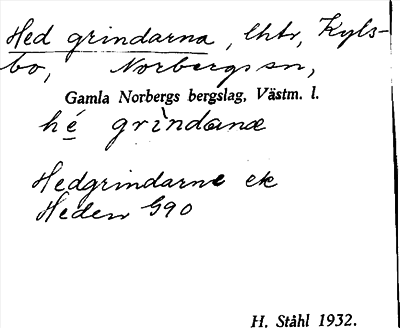 Hed grindarna, lhtr, Kyls-
bo, Norbergs sn,
Gamla Norbergs bergslag, Västm. l.
hé grìndanæ
Hedgrindarne ek
Heden G90
H. Ståhl 1932.